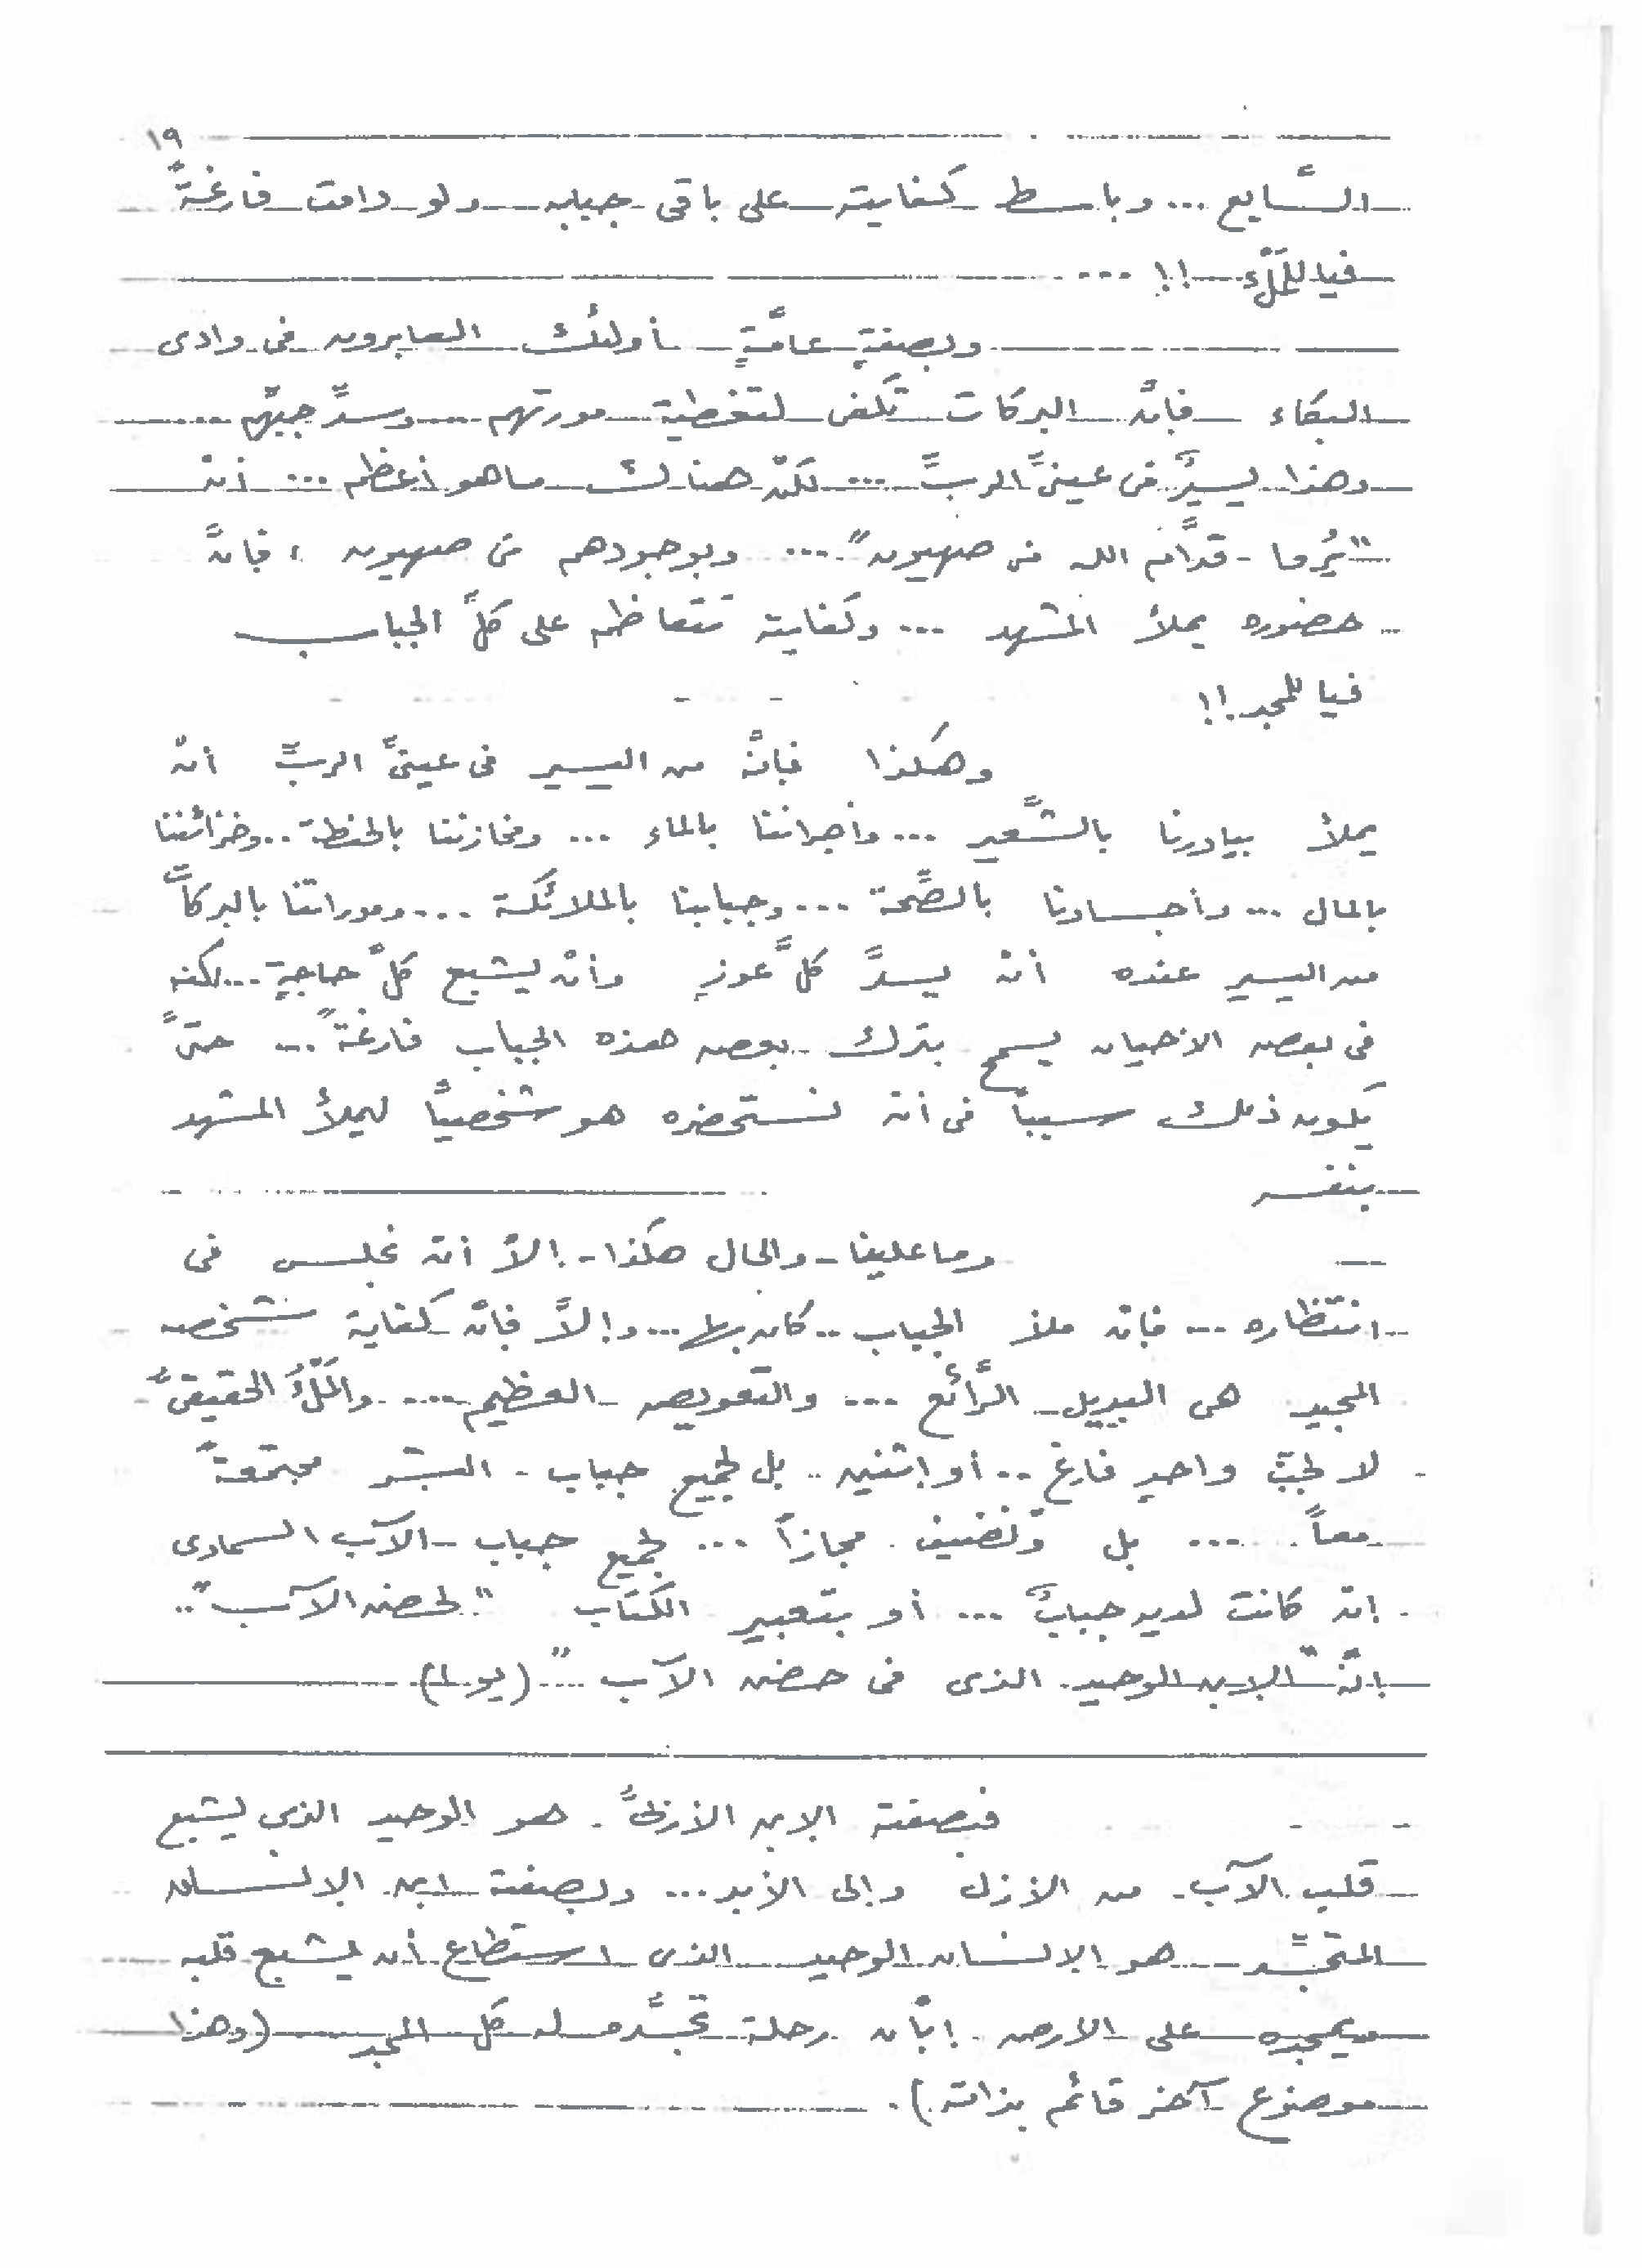 ١٩
السَّابع ... وباسط كفايته على باقى جبابه ولو دامت فارغةً
فيا للمَلْء !! ...
وبصفةٍ عامَّةٍ أولئك العابرون فى وادى
البكاء فانَّ البركات تكفى لتغطية عورتهم ... وسدِّ جبّهم ...
وهذا يسيرٌ فى عينىِّ الربِّ ... لكنْ هنالك ما هو أعظم ... أنْ
"يُروا - قدَّام الله فى صهيون" ... وبوجودهم فى صهيون ، فانَّ
حضوره يملأ المشهد ... وكفايته تتعاظم على كلِّ الجباب
فيا للمجد !!
وهكذا فانَّه من اليسير فى عينىِّ الربِّ أنْ
يملأ بيادرنا بالشَّعير ... وأجراننا بالماء ... ومخازننا بالحنطة .. وخزائننا
بالمال ... وأجسادنا بالصِّحة ... وجبابنا بالملائكة ... وعوراتنا بالبركات
من اليسير عنده أنْ يسدَّ كلَّ عوزٍ وأنْ يشبع كلَّ حاجةٍ ... لكنه
فى بعض الاحيان يسمح بترك بعض هذه الجباب فارغةً ... حتىَّ
يكون ذلك سبباً فى أنْ نستحضره هو شخصياًّ ليملأ المشهد
بنفسه
وما علينا - والحال هكذا - إلاَّ أنْ نجلس فى
انتظاره ... فانْ ملأ الجباب .. كان بها ... وإلاَّ فانَّ كفاية شخصه
المجيد هى البديل الرَّائع ... والتعويض العظيم ... والمَلْءُ الحقيقىُّ
لا لجبّ واحدٍ فارغ .. أو إثنين .. بل لجميع جباب البشر مجتمعةً
معاً ... بل ونضيف مجازاً ... لجميع جباب الآب السماوى
إنْ كانت لديه جبابٌ ... أو بتعبير الكتاب "لحضن الآب" ..
إنَّه "الابن الوحيد الذى فى حضن الآب ..." (يو١)
فبصفته الابن الأزلىَّ هو الوحيد الذى يشبع
قلب الآب من الازل وإلى الأبد ... وبصفته ابن الانسان
المتجسِّد هو الانسان الوحيد الذى استطاع أن يشبع قلبه
ويمجده على الارض إبَّان رحلة تجسُّده له كل المجد (وهذا
موضوع آخر قائم بذاته) .